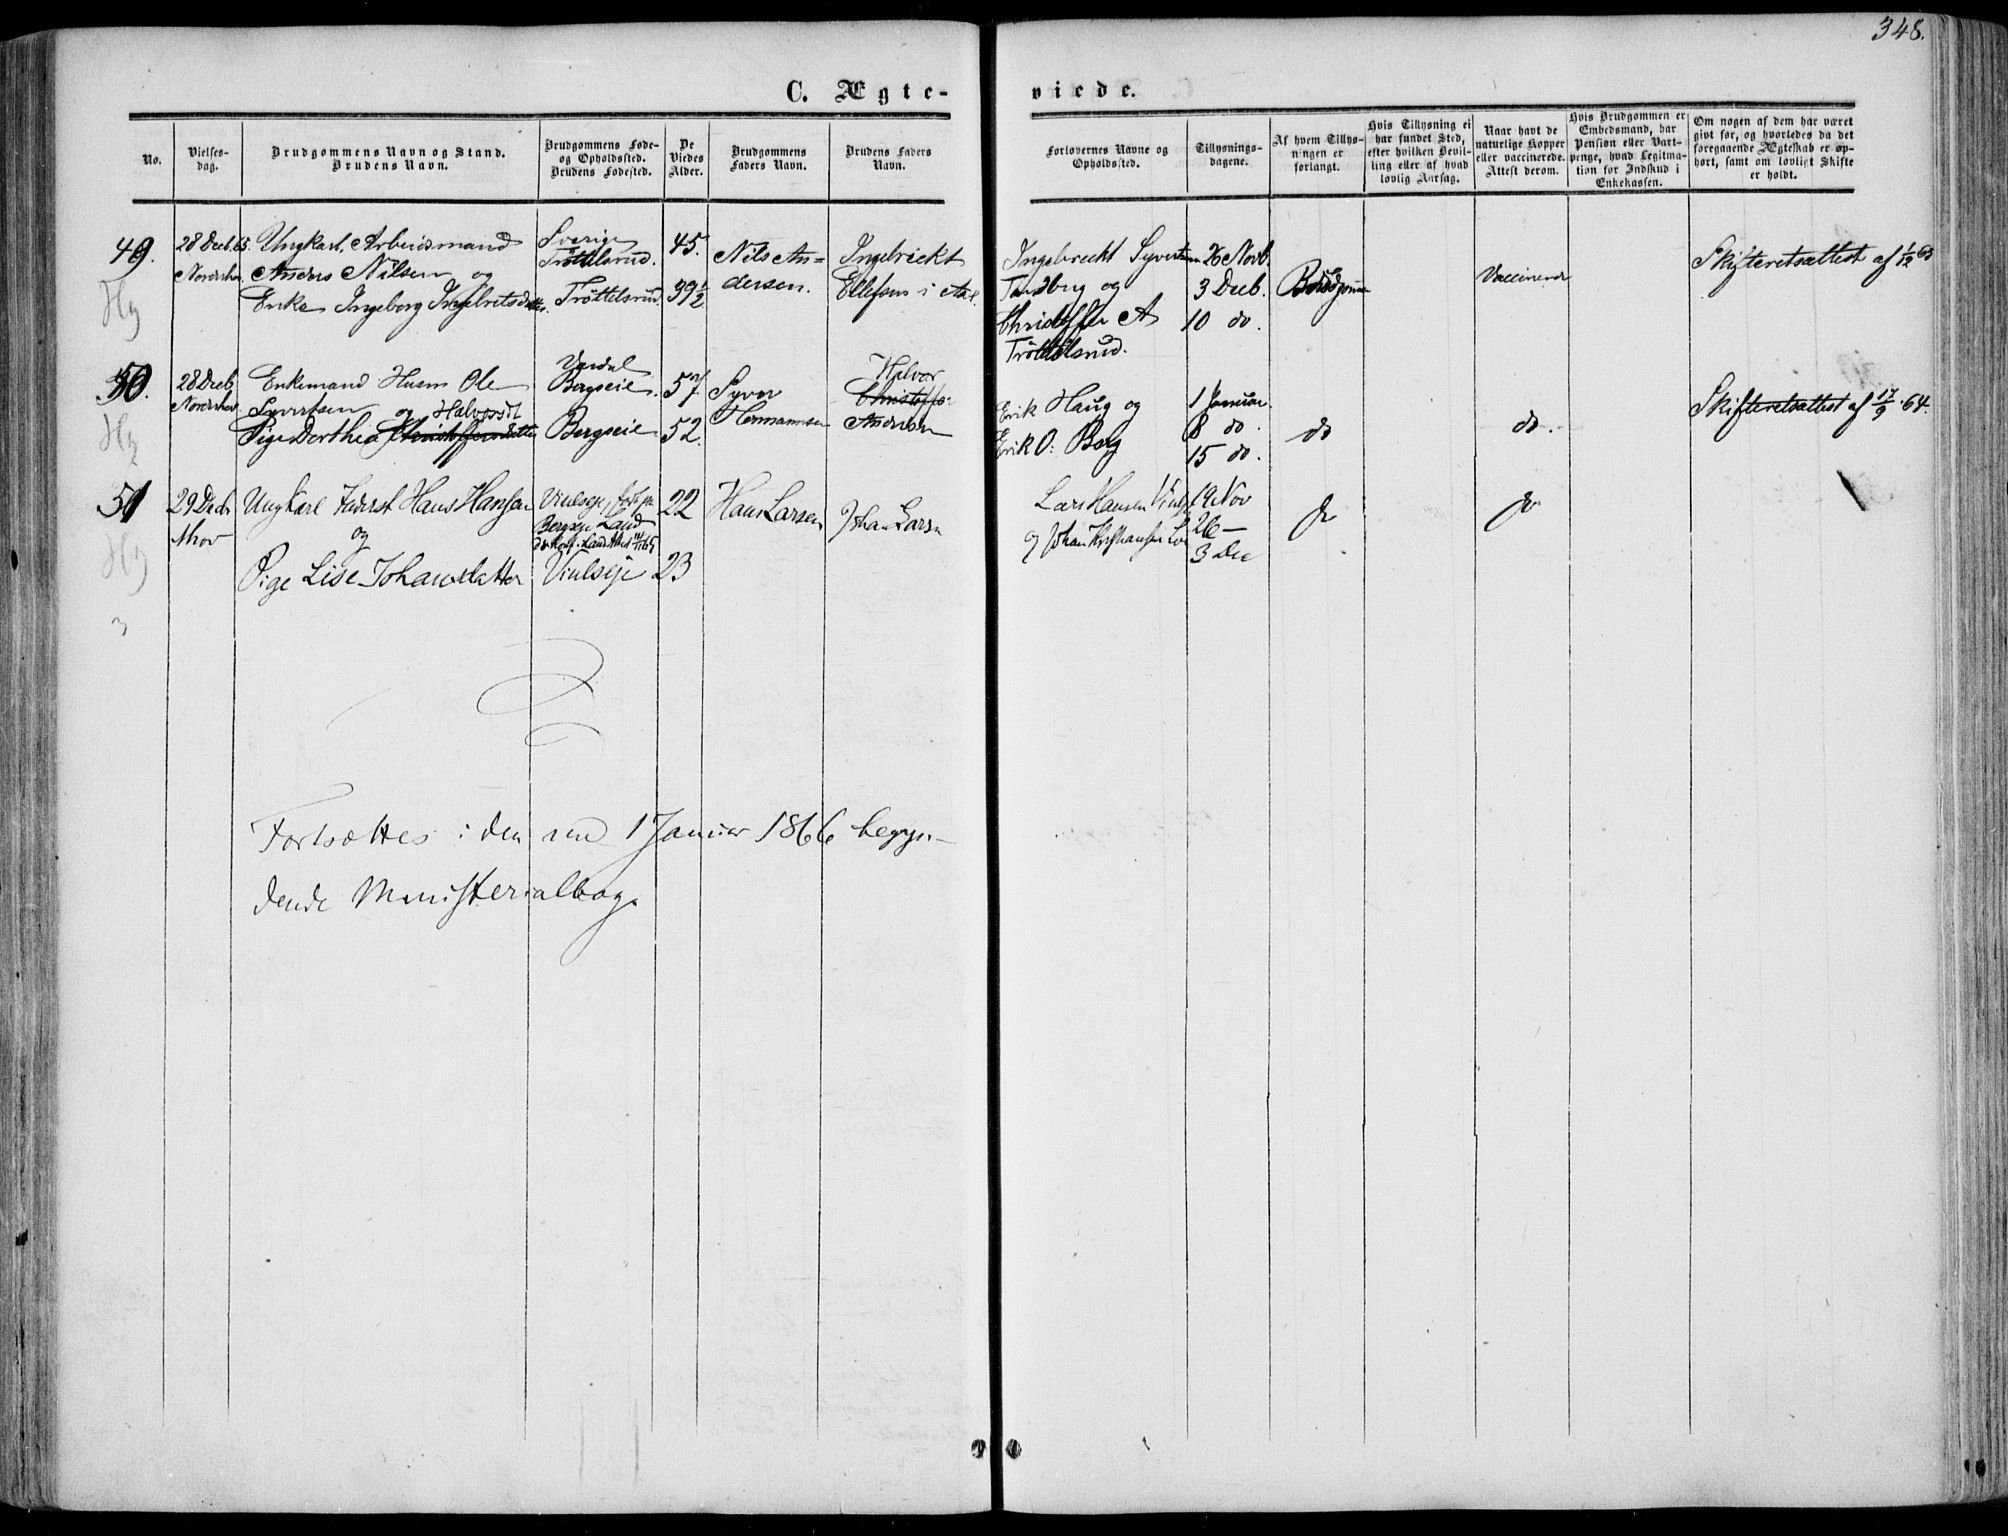 348.
C. Ægte-
viede.
No.
Vielses-
dag.
Brudgommens Navn og Stand.
Brudens Navn.
Brudgommens Føde-
og Opholdssted.
Brudens Fødested.
De
Viedes
Alder.
Brudgommens
Faders Navn.
Brudens Faders
Navn.
Forlovernes Navne og
Opholdssted.
Tillysnings-
dagene.
Af hvem Tillys-
ningen er
forlangt.
Hvis Tillysning ei
har fundet Sted,
efter hvilken Bevil-
ling eller af hvad
lovlig Aarsag.
Naar havt de
naturlige Kopper
eller vaccinerede.
Attest derom.
Hvis Brudgommen er
Embedsmand, har
Pension eller Vart-
penge, hvad Legitima-
tion for Indskud i
Enkekassen.
Om nogen af dem har været
givt før, og hvorledes da det
foregaaende Ægteskab er op-
hørt, samt om lovligt Skifte
er holdt.
49.
28 Decb. 65.
Norderhov
Ungkarl. Arbeidsmand
Anders Nilsen og
Enke Ingeborg Ingebretsdatter.
Sverige
Trøttelsrud.
Trøttelsrud
45.
39 1/2
Nils An=
dersen.
Ingebrickt
Ellefsen i Aal
Ingebreckt Syvertsen
Tandberg og
Christoffer A
Trøttelsrud.
26 Novb.
3 Decb.
10 do.
Brudgommen
Vaccinerede
Skifteretsattest af 1/12 65
50.
28 Decb
Norderhov
Enkemand Husm Ole
Syvertsen og Halvorsdt
Pige Dorthea Christoffersdatter
Vardal
Bergseie.
Bergseie
57
52.
Syver
Hermansen
Halvor
Christoffer
Andersen
Erik Haug og
Erik O. Berg
1 Januar.
8 do.
15 do.
do
do.
Skifteretsattest af 17/9. 64.
51
29 Decb
Nhov
Ungkarl Inderst Hans Hansen
og
Pige Lise Johansdatter
Viulseje, født paa
Bergseje Land
Viulseje
22
23
Hans Larsen
Johan Larsen
Lars Hansen Viulsj
og Johan
19 Nov
26 —
3 Dec
do
do
Fortsættes i den med 1 Januar 1866 begyn-
dende Ministerialbog.